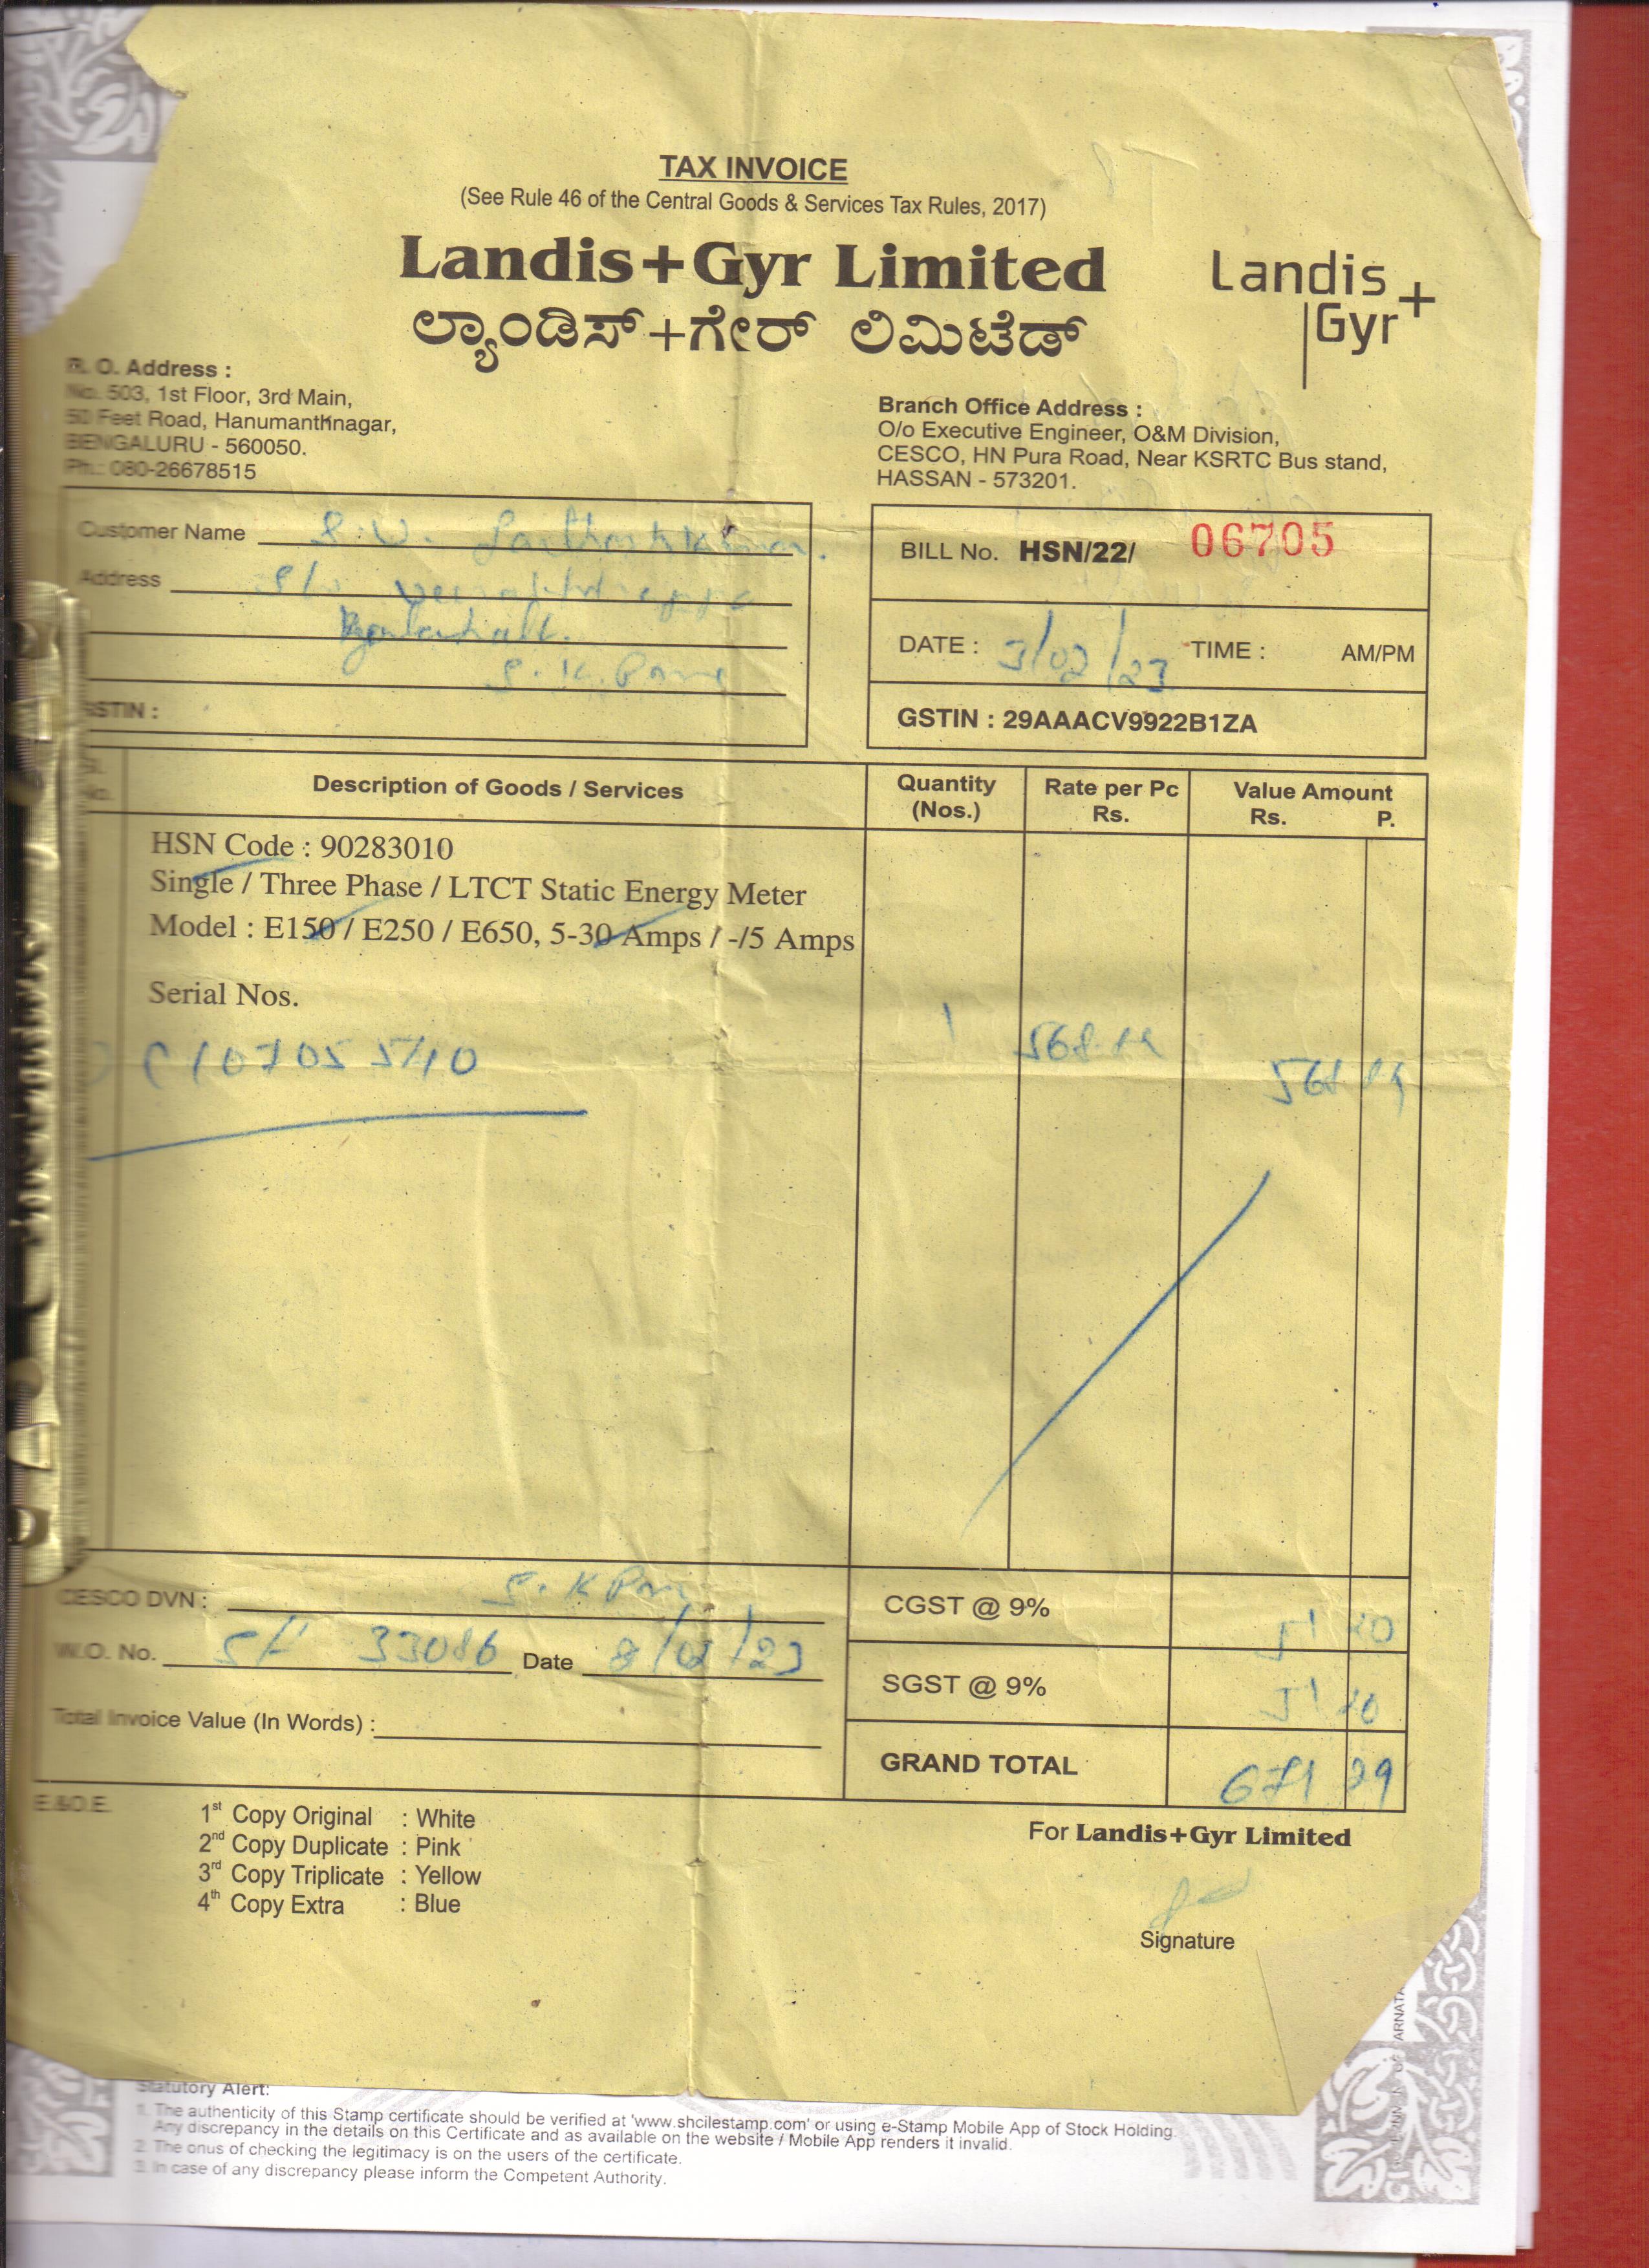 TAX INVOICE
(See Rule 46 of the Central Goods & Services Tax Rules, 2017)
Landis+Gyr Limited
ಲ್ಯಾಂಡಿಸ್+ಗೇರ್ ಲಿಮಿಟೆಡ್
Landis
Gyr+
R. O. Address :
No. 503, 1st Floor, 3rd Main,
50 Feet Road, Hanumanthnagar,
BENGALURU - 560050.
Ph.: 080-26678515
Branch Office Address :
O/o Executive Engineer, O&M Division,
CESCO, HN Pura Road, Near KSRTC Bus stand,
HASSAN - 573201.
Customer Name
Address
GSTIN :
BILL No. HSN/22/ 06705
DATE : 3/02/23 TIME : AM/PM
GSTIN : 29AAACV9922B1ZA
Sl. No. Description of Goods / Services Quantity (Nos.) Rate per Pc Rs. Value Amount Rs. P.
HSN Code : 90283010
Single / Three Phase / LTCT Static Energy Meter
Model : E150 / E250 / E650, 5-30 Amps / -/5 Amps
Serial Nos.
1
CESCO DVN :
W.O. No. 33086 Date 8/02/23
Total Invoice Value (In Words) :
CGST @ 9%
SGST @ 9%
GRAND TOTAL 671
E.&O.E.
1st Copy Original : White
2nd Copy Duplicate : Pink
3rd Copy Triplicate : Yellow
4th Copy Extra : Blue
For Landis+Gyr Limited
Signature
Statutory Alert:
1. The authenticity of this Stamp certificate should be verified at 'www.shcilestamp.com' or using e-Stamp Mobile App of Stock Holding.
Any discrepancy in the details on this Certificate and as available on the website / Mobile App renders it invalid.
2. The onus of checking the legitimacy is on the users of the certificate.
3. In case of any discrepancy please inform the Competent Authority.